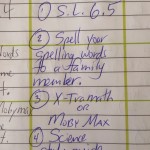 4
① S.L. 6.5
② Spell your
spelling words
to a family
member.
③ X-tramath
OR
Moby Max
④ Science